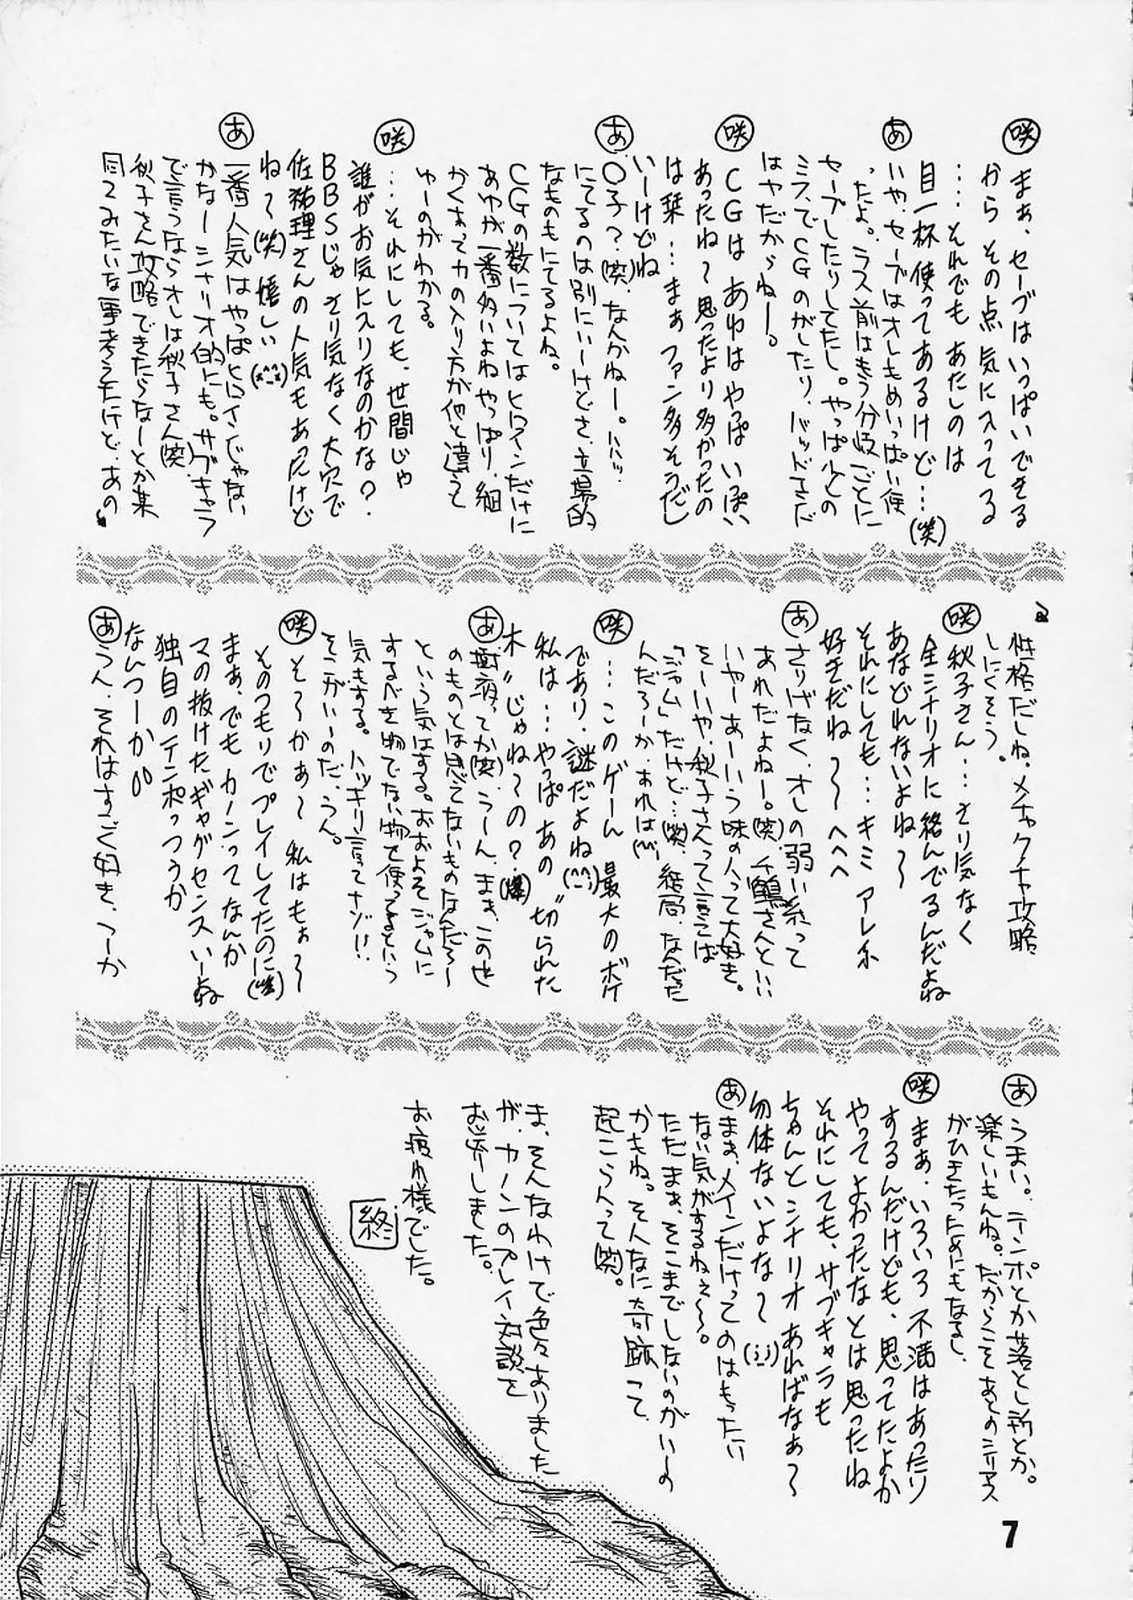 咲 まぁ、セーブはいっぱいできる
から その点 気に入ってる
…それでも あたしのは
目一杯使ってあるけど…(笑)
あ いや、セーブはオレもめいっぱい使
ったよ。ラス前はもう分岐ごとに
セーブしたりしてたし。やっぱ少しの
ミスでCGのがしたり、バッドエンド
はやだからねー。
咲 CGは あゆはやっぱ いっぱい
あったね〜 思ったより多かったの
は栞…まぁ ファン多そうだし
いーけどね
あ 〇子?(笑) なんかねー。ハハッ
にてるのは別にいーけどさ、立場的
なものもにてるよね。
CGの数についてはヒロインだけに
あゆが一番多いよねやっぱり。細
かくまで力の入り方が他と違う
ゆーのがわかる。
咲 …それにしても、世間じゃ
誰がお気に入りなのかな?
BBSじゃ さり気なく大穴で
佐祐理さんの人気もあったけど
ね〜(笑) 嬉しい(x^-^x)
あ 一番人気はやっぱヒロインじゃない
かなー シナリオ的にも。サブキャラ
で言うならオレは秋子さん(笑)
秋子さん攻略できたらなーとか某
同人みたいな事考えたけど、あの
性格だしね。メチャクチャ攻略
しにくそう。
咲 秋子さん…さり気なく
全シナリオに絡んでるんだよね
あなどれないよね〜
それにしても…キミ アレ系
好きだね 〜〜へへへ
あ さりげなく、オレの弱い系って
あれだよねー。(笑) 千鶴さんといい
いやーあーいう味の人って大好き。
そーいや、秋子さんって言えば
「ジャム」だけど…(笑) 結局、なんだった
んだろーか、あれは(^^;
咲 …このゲーム 最大のボケ
であり、謎だよね(^^;)
私は…やっぱあの“切られた
木”じゃね〜の?(爆)
あ 樹液ってか(笑) うーん、まぁ、この世
のものとは思えないものなんだろー
という気はする。おおよそジャムに
するべき物でない物で使ってるという
気もする。ハッキリ言ってナゾ!!
そこがいーのだ、うん。
咲 そ〜かぁ〜 私はもぉ〜
そのつもりでプレイしてたのに(笑)
まぁ、でも カノンってなんか
マの抜けたギャグセンスいーよね
独自のテンポっつうか
なんつーか。
あ うん、それはすごく好き、つーか
あ うまい。テンポとか落とし所とか。
楽しいもんね。だからこそあとのシリアス
がひきたったりにもなるし、
咲 まぁ、いろいろ不満はあったり
するんだけども、思ってたよか
やってよかったなとは思ったね
それにしても、サブキャラも
ちゃんとシナリオあればなぁ〜
勿体ないよな〜(;_;)
あ まぁ、メインだけってのはもったい
ない気がするねぇ〜。
ただまぁ、そこまでしないのがいいの
かもね。そんなに奇跡って
起こらんって(笑)。
ま、そんなわけで色々ありました
が、カノンのプレイ対談を
お送りしました。
お疲れ様でした。
終
7